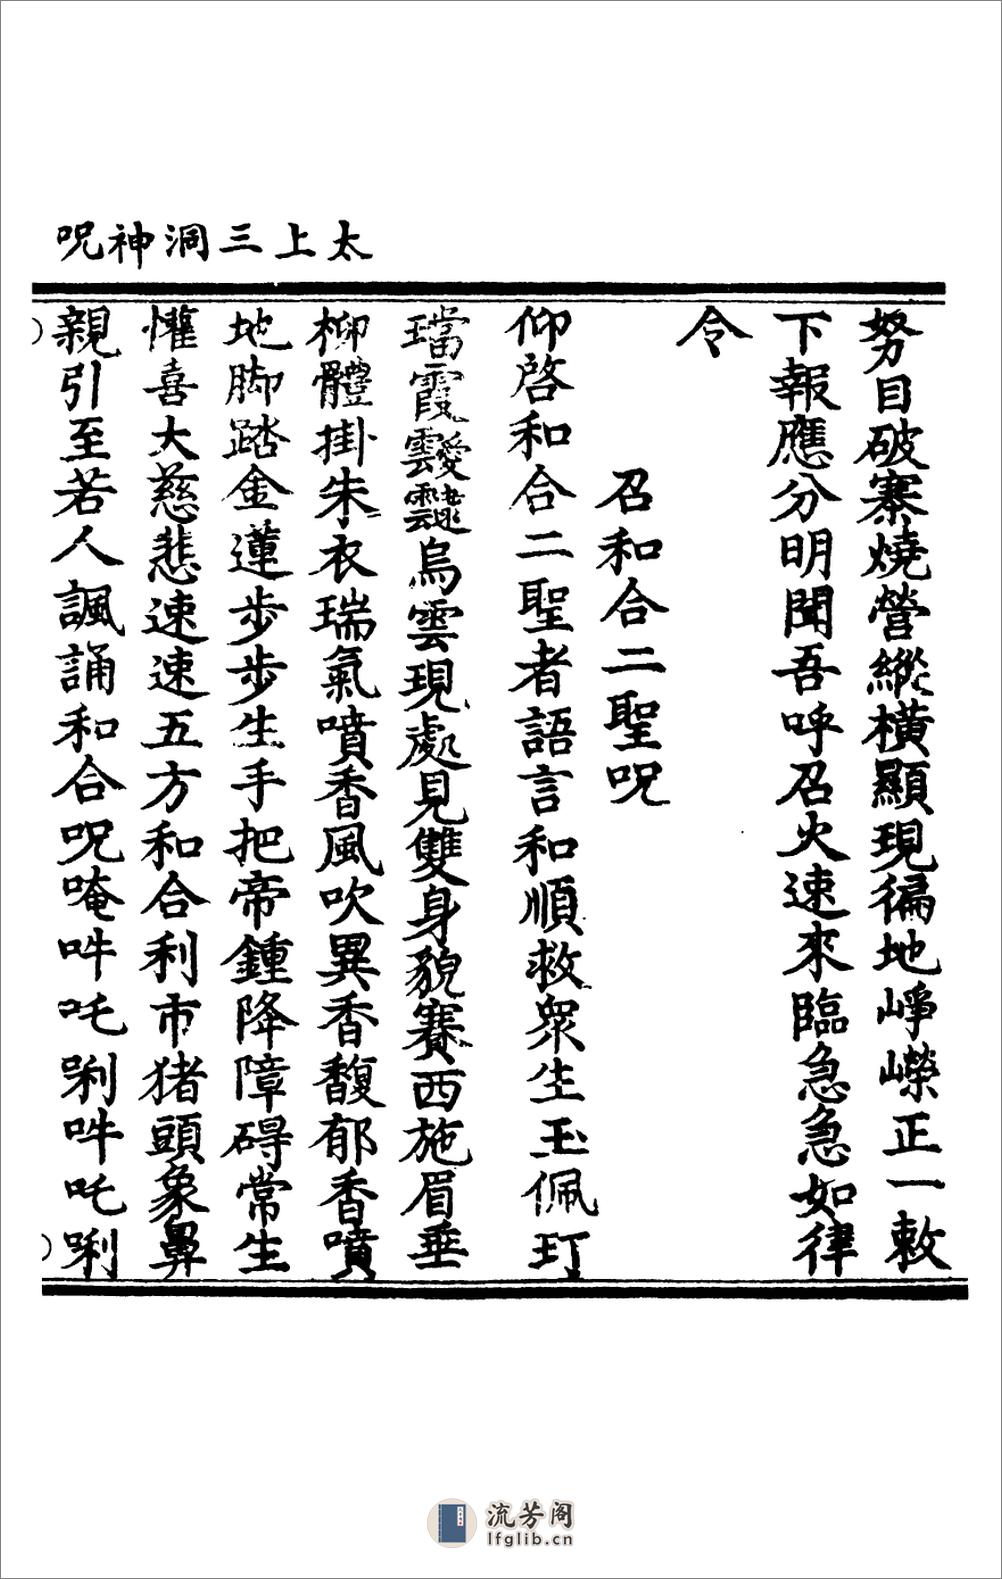 太上三洞神呪
努目破寨燒營縱橫顯現徧地崢嶸正一敕
下報應分明聞吾呼召火速來臨急急如律
令
召和合二聖呪
仰啓和合二聖者語言和順救眾生玉佩玎
璫霞靉靆烏雲現處見雙身貌賽西施眉垂
柳體掛朱衣瑞氣噴香風吹異香馥郁香噴
地脚踏金蓮步步生手把帝鍾降障碍常生
懽喜大慈悲速速五方和合利市猪頭象鼻
親引至若人諷誦和合呪唵吽吒唎吽吒唎
流芳阁
lfglib.cn